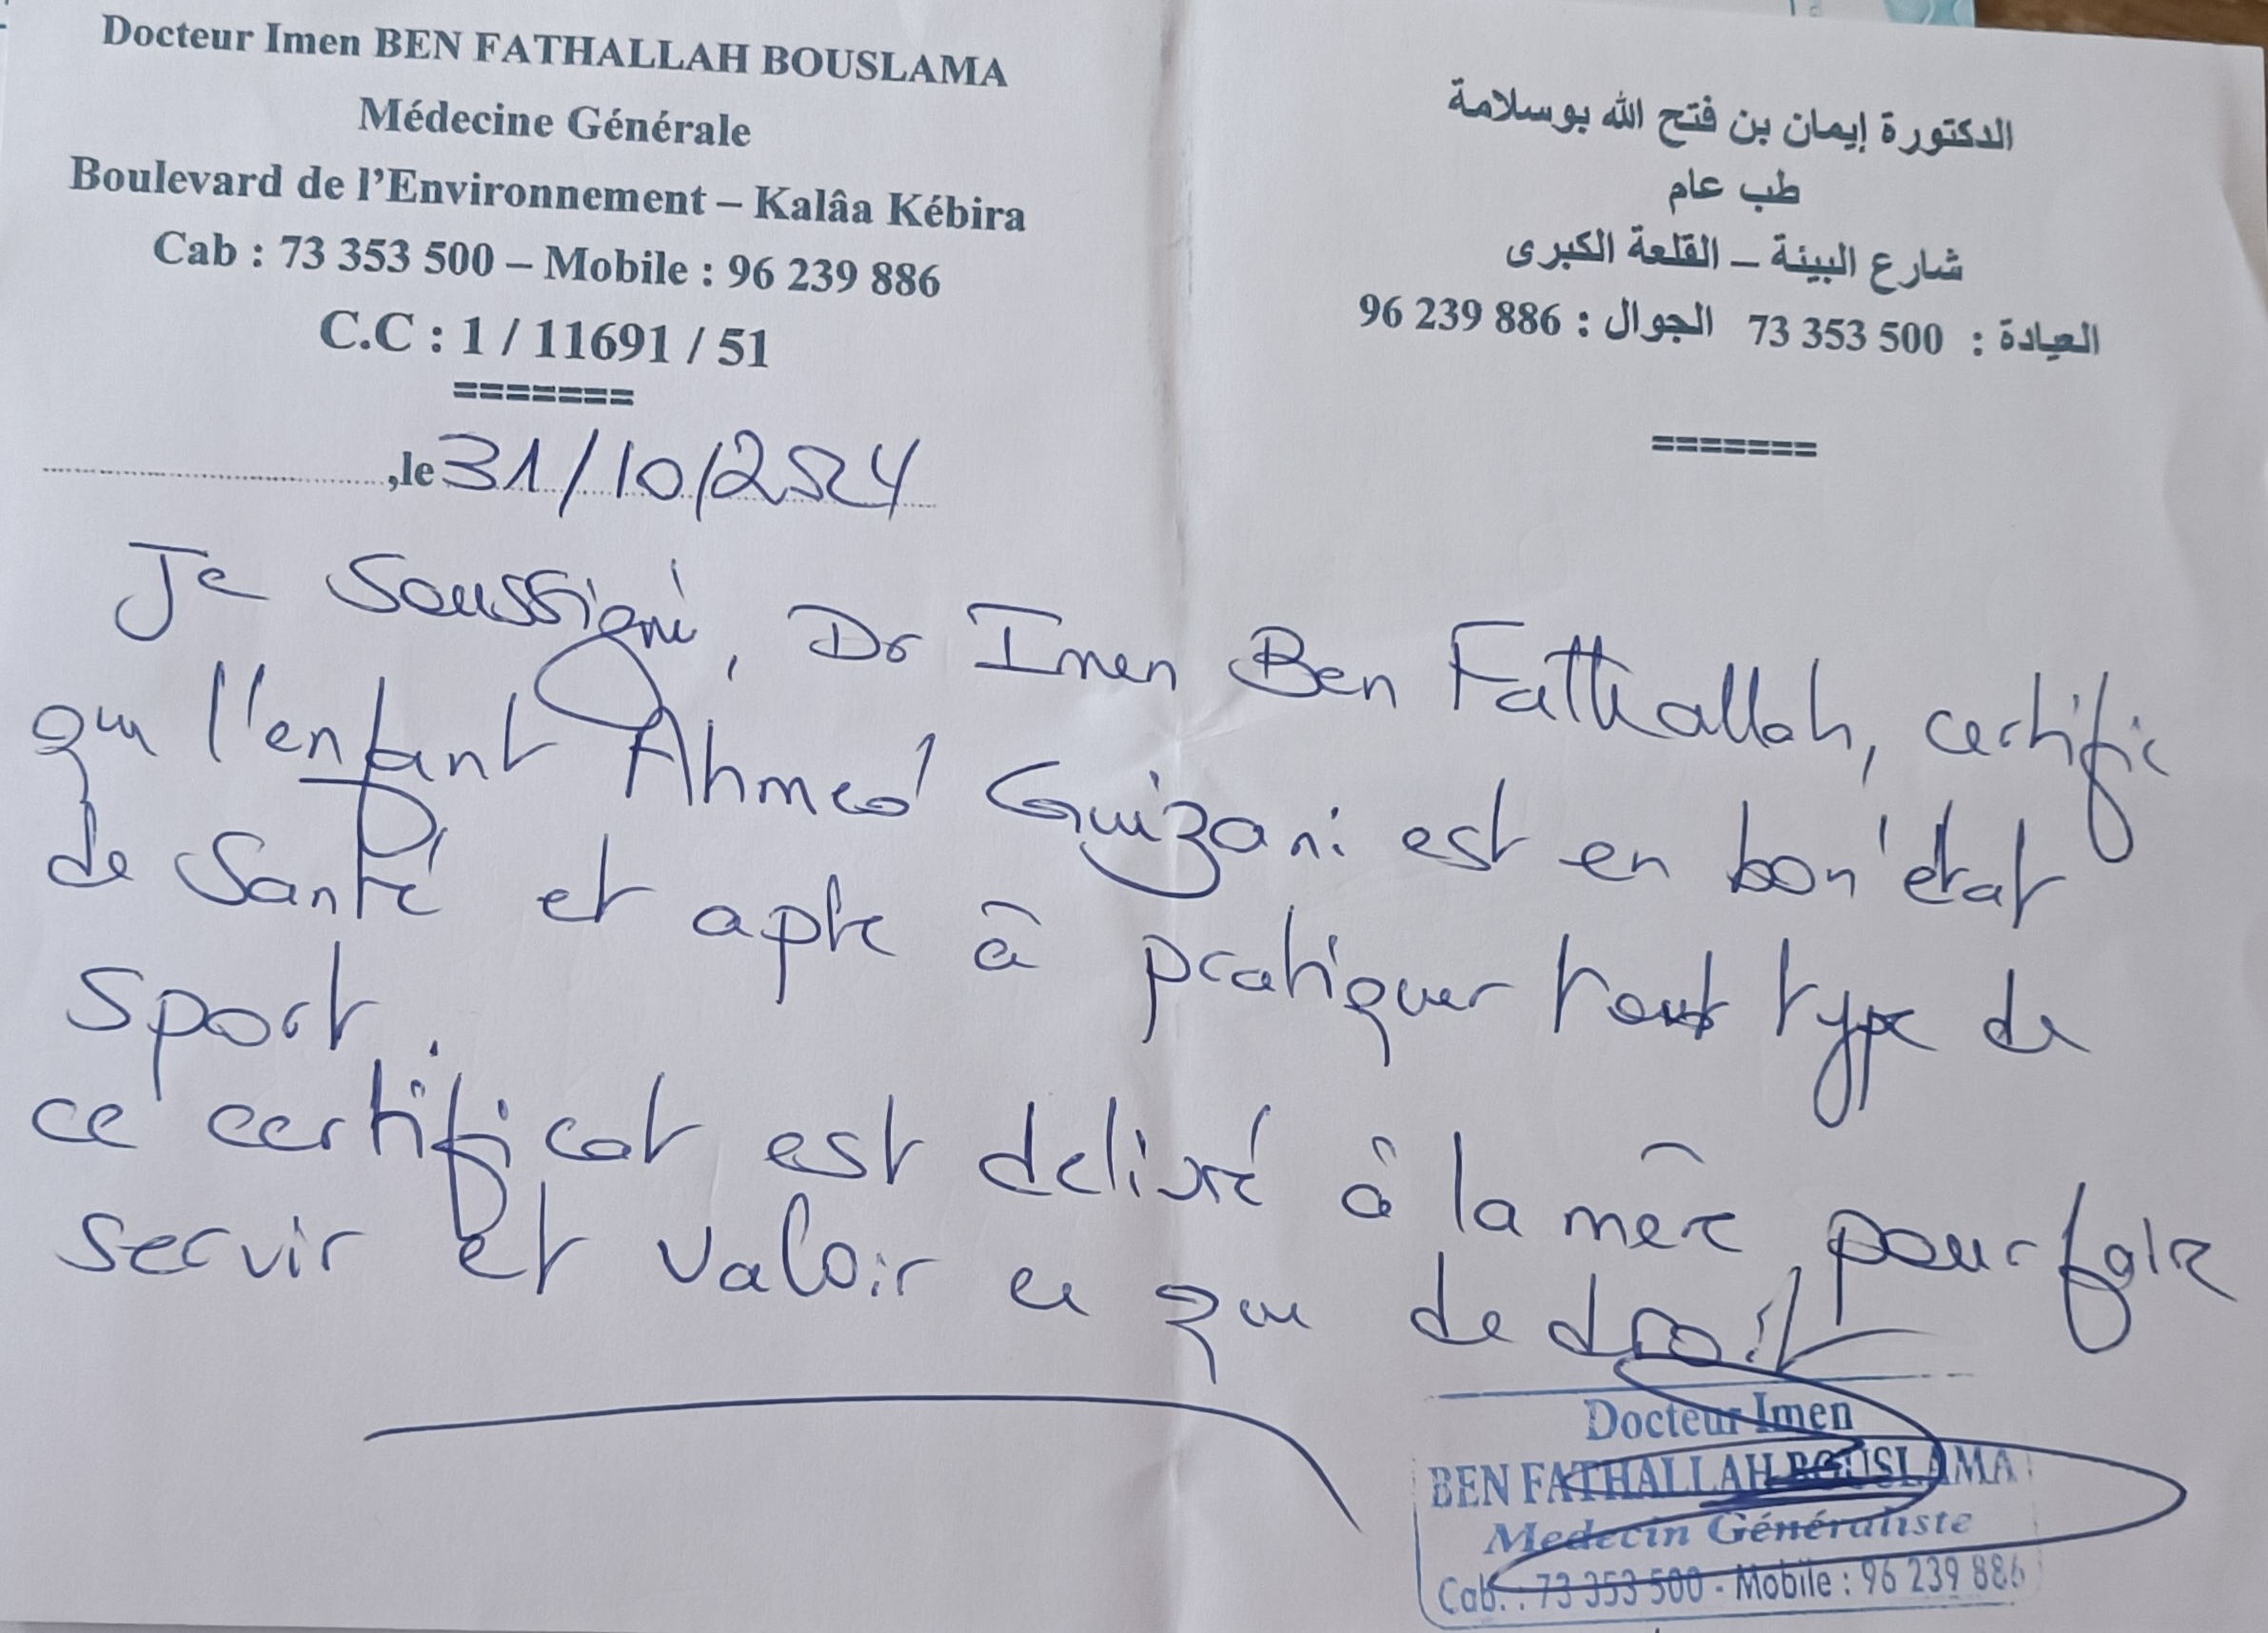 Docteur Imen BEN FATHALLAH BOUSLAMA
Médecine Générale
Boulevard de l'Environnement – Kalâa Kébira
Cab : 73 353 500 – Mobile : 96 239 886
C.C : 1 / 11691 / 51
=======
الدكتورة إيمان بن فتح الله بوسلامة
طب عام
شارع البيئة – القلعة الكبرى
العيادة : 73 353 500 الجوال : 96 239 886
=======
,le 31/10/2024
Je soussigné, Dr Imen Ben Fathallah, certifie
que l'enfant Ahmed Guizani est en bon état
de Santé et apte à pratiquer tout type de
Sport.
ce certificat est delivré à la mère pour faire
servir et valoir ce que de droit
Docteur Imen
BEN FATHALLAH BOUSLAMA
Medecin Généraliste
Cab. : 73 353 500 - Mobile : 96 239 886